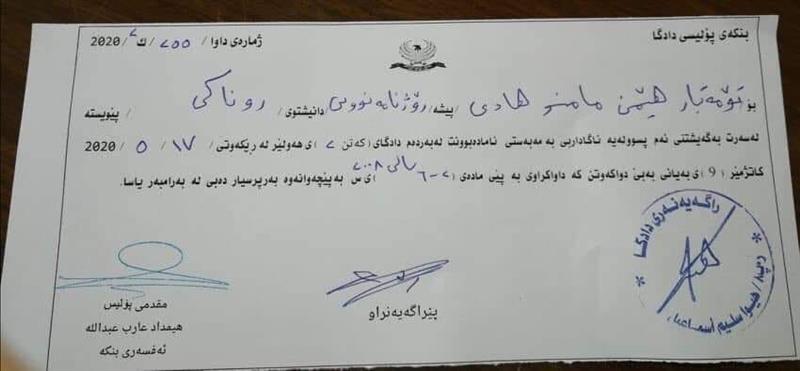 بنکەی پۆلیسی دادگا
ژمارەی داوا / ٢٥٥ /ك ٢/ 2020
بۆ تۆمەتبار هێمن مامند هادی /پیشە/ رۆژنامەنووس /دانیشتوی/ روناکی /پێویستە
لەسەرت بەگەیشتنی ئەم پسوولەیە ئاگاداریی بە مەبەستی ئامادەبوونت لەبەردەم دادگای (کەتن ٢) ی هەولێر لە رێکەوتی ١٧ / ٥ / 2020
کاتژمێر (9) ی بەیانی بەبێ دواکەوتن کە داواکراوی بە پێی مادەی (٢-٦ ساڵی ٢٠٠٨) ی س بەپێچەوانەوە بەرپرسیار دەبی لە بەرامبەر یاسا.
راگەیەنەری دادگا
هێوا سلیم اسماعیل
پێراگەیەنراو
مقدمی پۆلیس
هیمداد عارب عبداللە
ئەفسەری بنکە